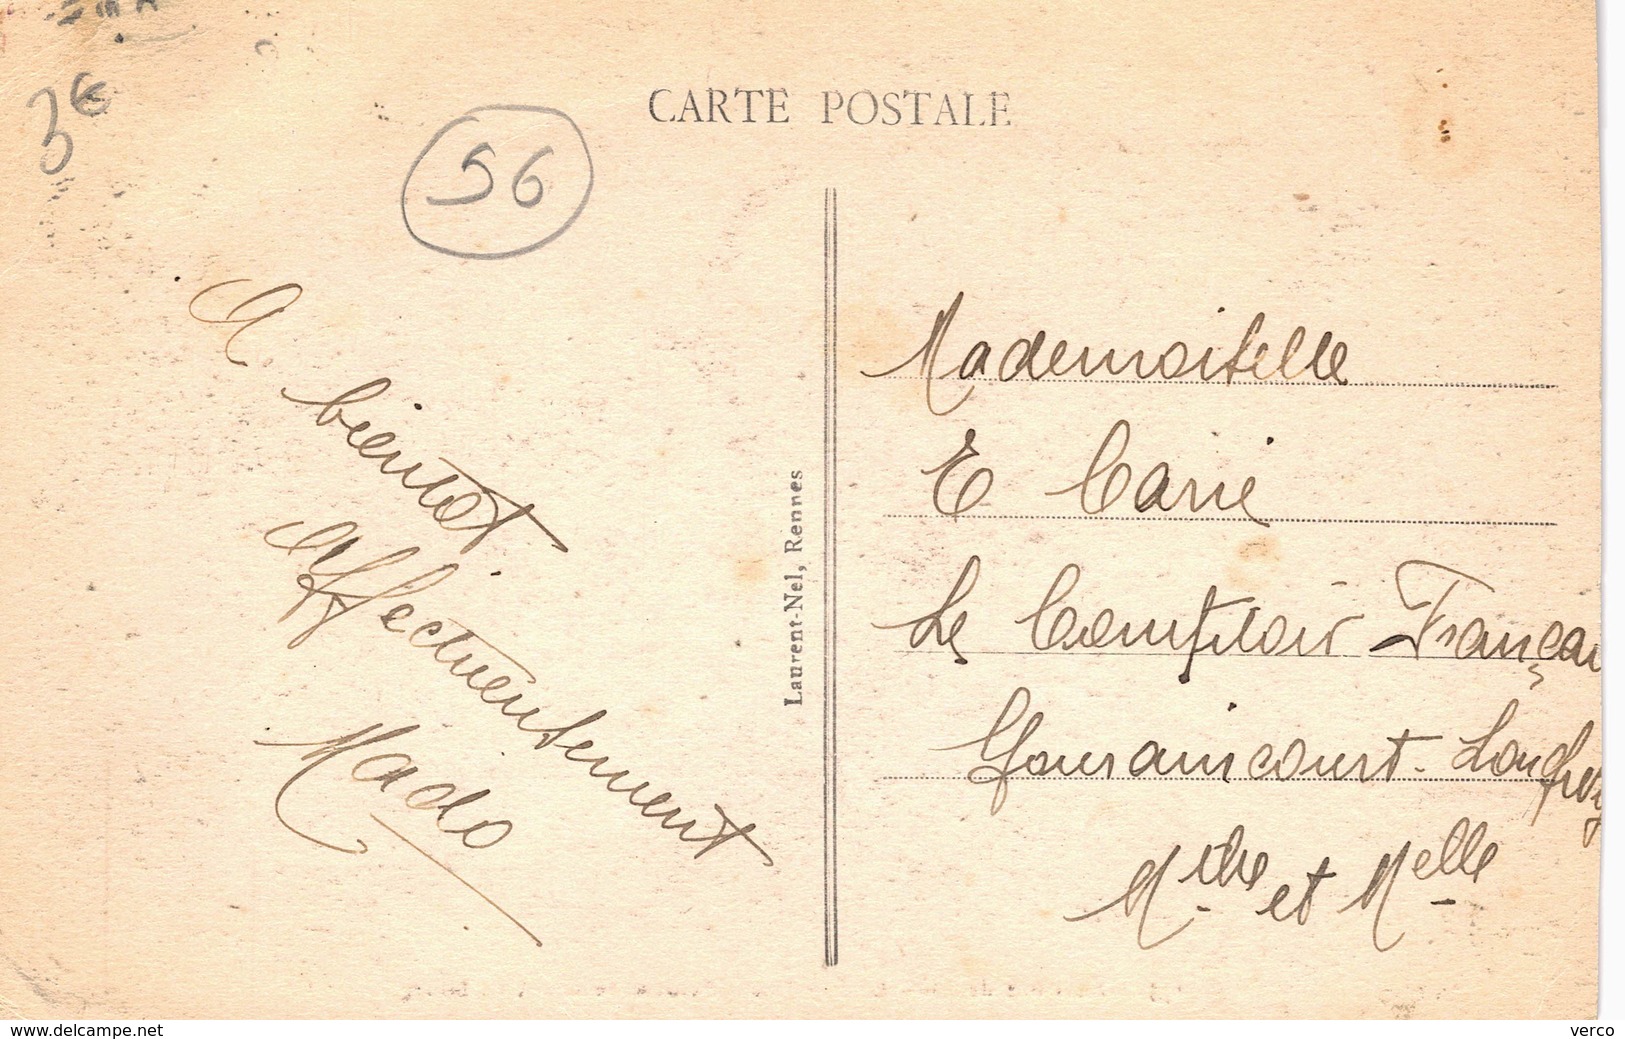 3€
56
CARTE POSTALE
A
bientot
Affectueusement
Mado
Laurent-Nel, Rennes
Mademoiselle
E Carré
Le Comptoir Françai
Gouraincourt. Longwy
Mthe et Melle
www.delcampe.net
verco